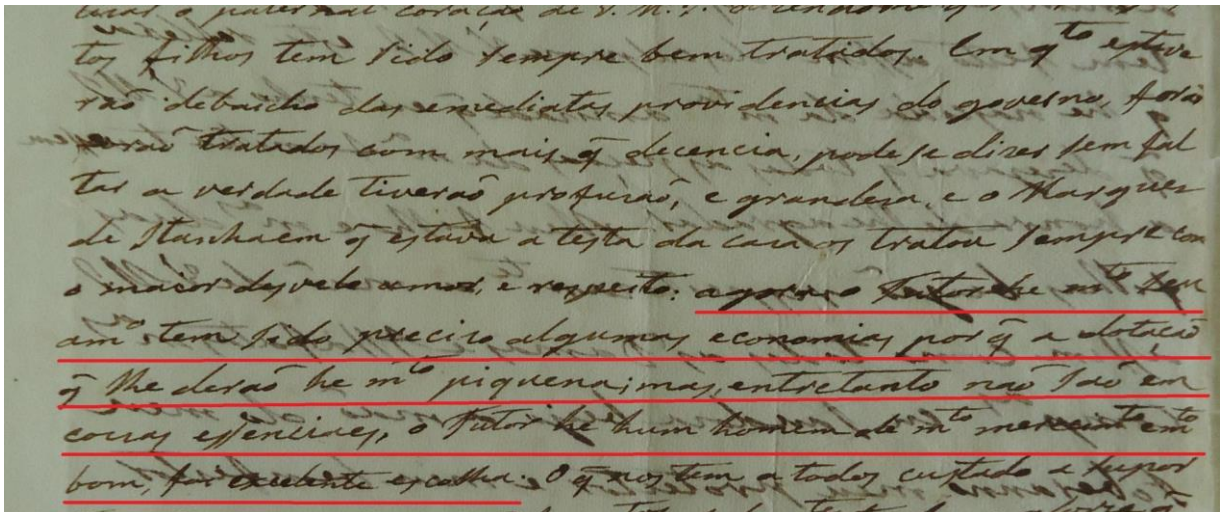 paternal coração de V. M. I. dizendo me q
tos filhos tem sido sempre bem tratados. Em q.to estive
rão debaicho das emediatas providencias do governo, forão
tratados com mais q̃ decencia, pode se dizer sem fal
tar a verdade tiverão profuzão, e grandesa, e o Marques
de Itanhaem q̃ estava a testa da caza os tratou sempre com
o maior desvelo amor, e respeito: agora o Tutor he m.to seu
am.o tem sido precizo algumas economias porq̃ a dotacão
q̃ lhe derão he m.to piquena; mas, entretanto não são em
couzas essenciaes, o Tutor he hum homem de m.to merecim.to e m.to
bom, foi excelente escolha. O q̃ nos tem a todos custado a supor